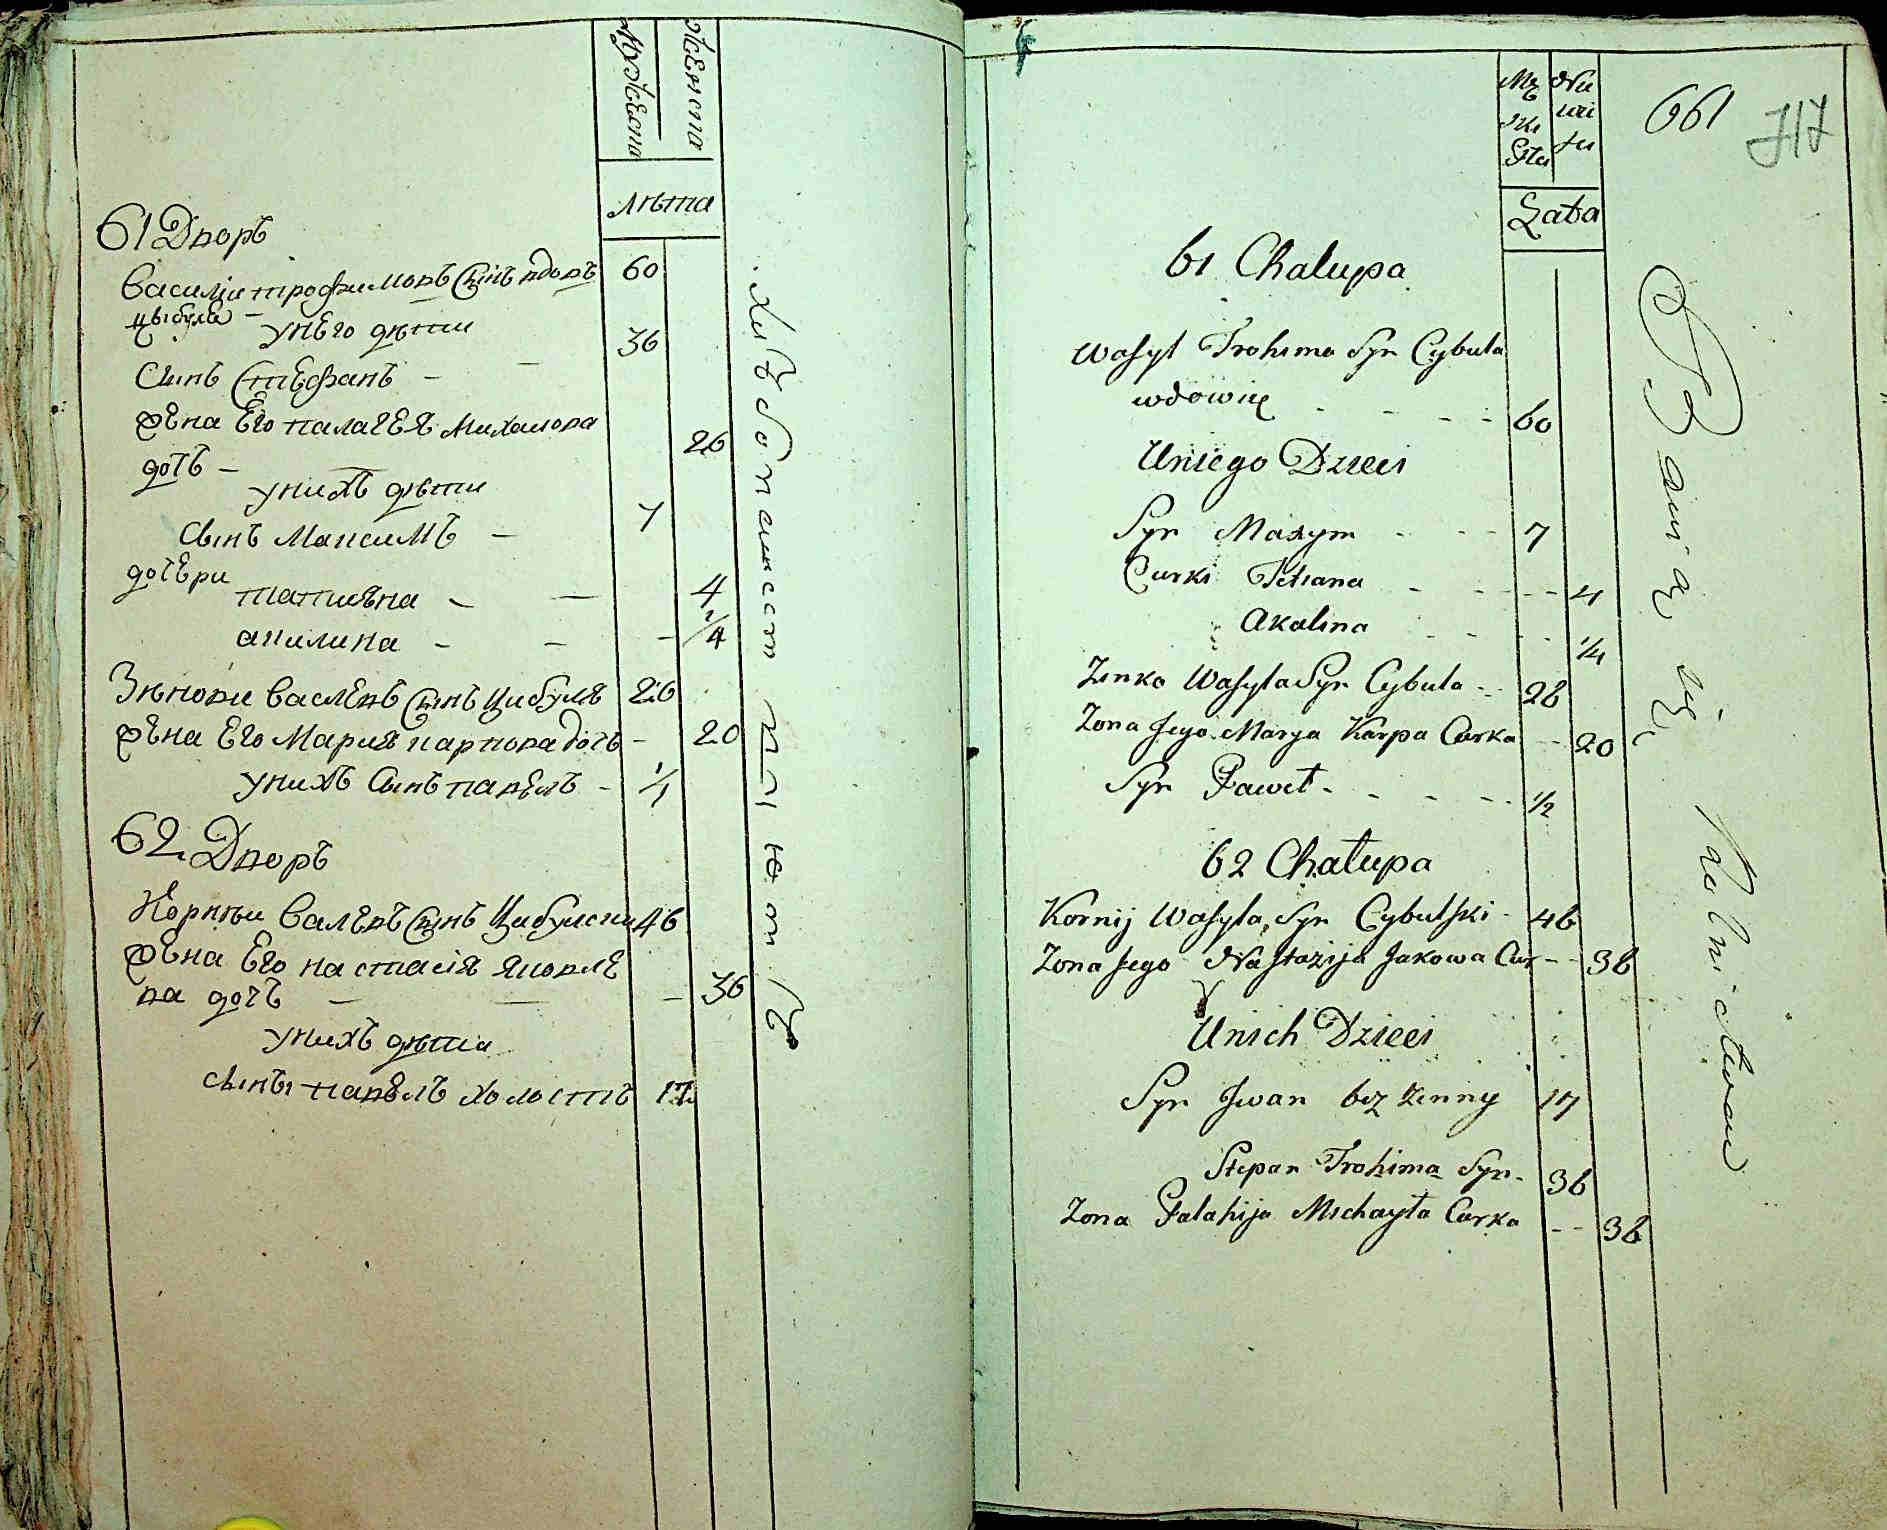 Мужеска
Женска
лѣта
61 Дворъ
Василии трофимовъ Сынъ вдовъ 60
цыбуля –
унего дѣти
Сынъ Стефанъ – – 36
жена Его палагея Михаилова
дочь – 26
унихъ дѣти
Сынъ Максимъ – 7
дочери
татияна – – 4
акилина – – – 1/4
Зѣновеи Василевъ Сынъ Цибуля 26
жена Его Мария карпова дочь – 20
унихъ Сынъ павелъ – 1/4
62 Дворъ
Корнѣи Васлевъ Сынъ Цибулски 46
жена Его настасія яковле
ва дочь – – – 36
унихъ дѣти
сынъ павелъ холостъ 17
Хлѣбопашест
Mę
ski
Płci
Nie
wi
Lata
661
717
61 Chalupa
Wasyl Trohima Syn Cybula
wdowiec - - - - 60
Uniego Dzieci
Syn Maxym - - - 7
Curki Tetiana - - - - 4
Akalina - - - - 1/4
Zenko Wasyla Syn Cybula - 26
Zona Jego Marya Karpa Curka - - 20
Syn Paweł - - - - 1/2
62 Chałupa
Kornij Wasyla Syn Cybulski - 46
Zona Jego Nastazija Jakowa Cur - - 36
Unich Dzieci
Syn Jwan bez zenny 17
Stepan Trohima Syn - 36
Zona Palahija Michayła Curka - - 36
Bawią się Rolnictwem